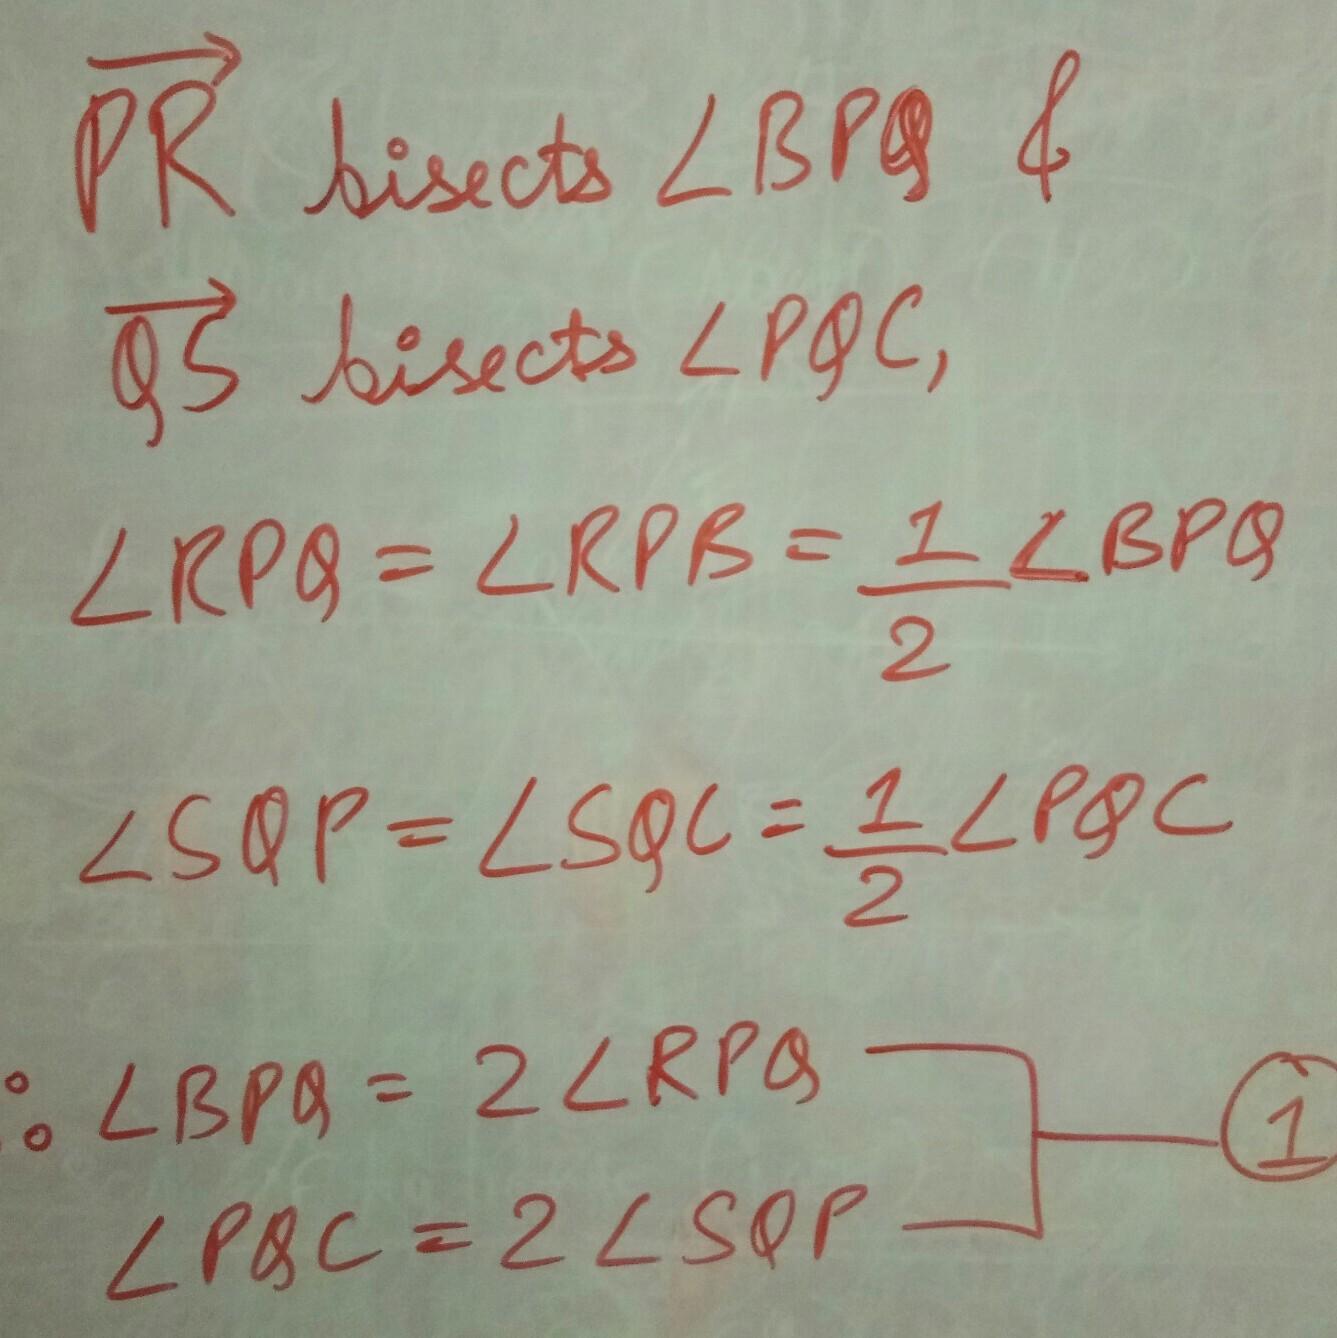 PR bisects ∠BPQ &
QS bisects ∠PQC,
∠RPQ = ∠RPB = 1/2 ∠BPQ
∠SQP = ∠SQC = 1/2 ∠PQC
∴ ∠BPQ = 2∠RPQ
∠PQC = 2∠SQP
1